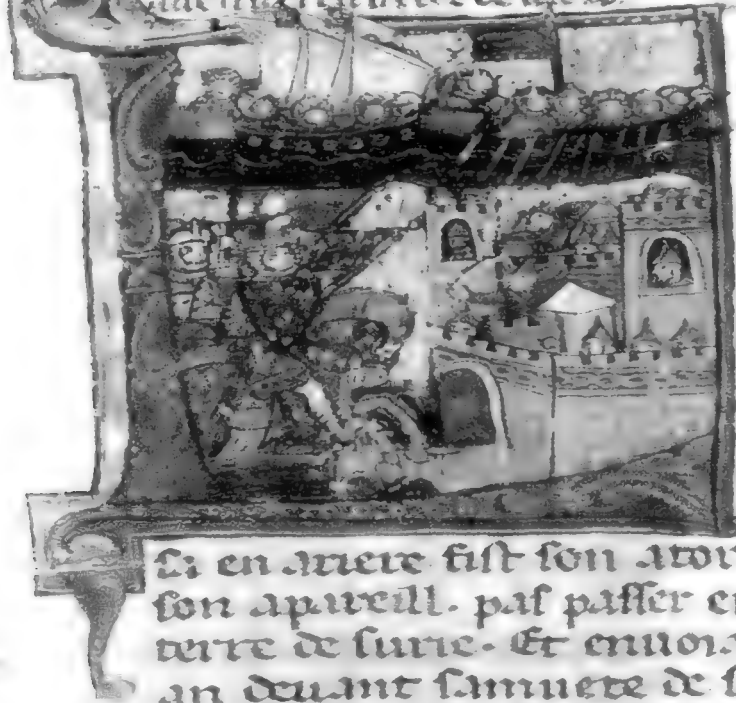 en ariere fist son ator
son apareill. pas passer e
terre de surie. Et enuoia
an deuant sa muete de s